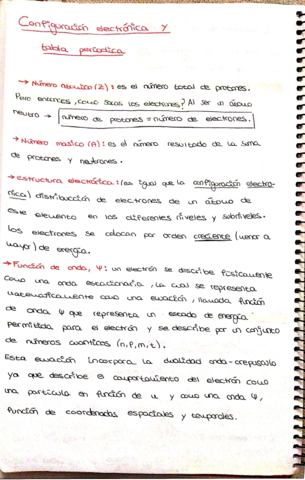 Configuración electrónica y
tabla periódica
→ Número atómico (Z): es el número total de protones.
Pero entonces, ¿cómo sacas los electrones? Al ser un átomo
neutro → número de protones = número de electrones.
→ Número másico (A): es el número resultado de la suma
de protones y neutrones.
→ Estructura electrónica: (es igual que la configuración electró-
nica) distribución de electrones de un átomo de
este elemento en los diferentes niveles y subniveles.
Los electrones se colocan por orden creciente (menor a
mayor) de energía.
→ Función de onda, Ψ: un electrón se describe físicamente
como una onda estacionaria, la cual se representa
matemáticamente como una ecuación, llamada función
de onda Ψ que representa un estado de energía
permitida para el electrón y se describe por un conjunto
de números cuánticos
Esta ecuación incorpora la dualidad onda-corpúsculo
ya que describe el comportamiento del electrón como
una partícula en función de y como una onda Ψ,
función de coordenadas espaciales y temporales.